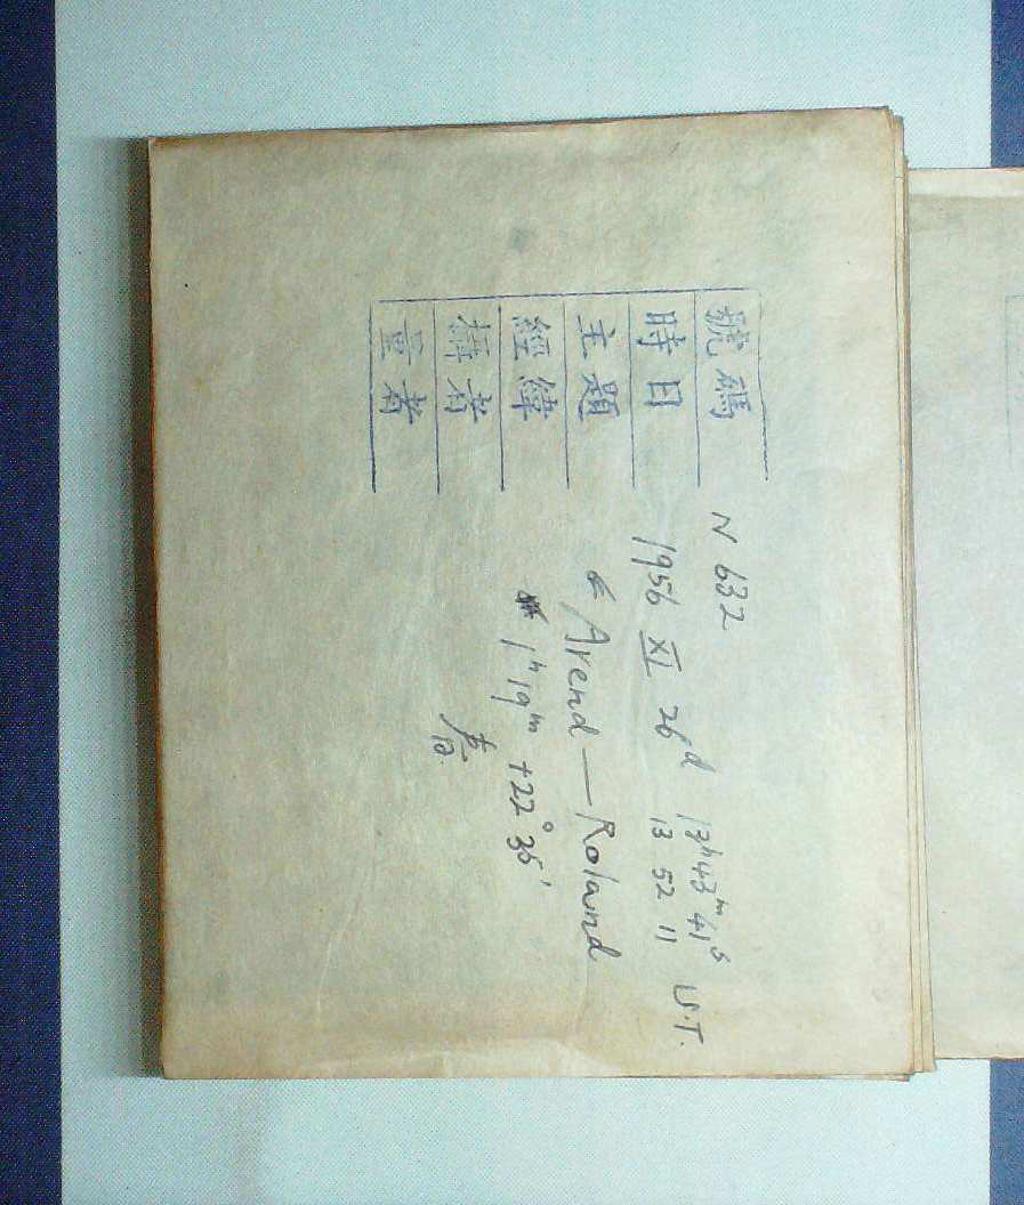 號碼 N 632
時日 1956 XI 26d 13h43m41s U.T.
13 52 11
主題 Arend—Roland
經緯 1h19m +22°35'
攝者
量者